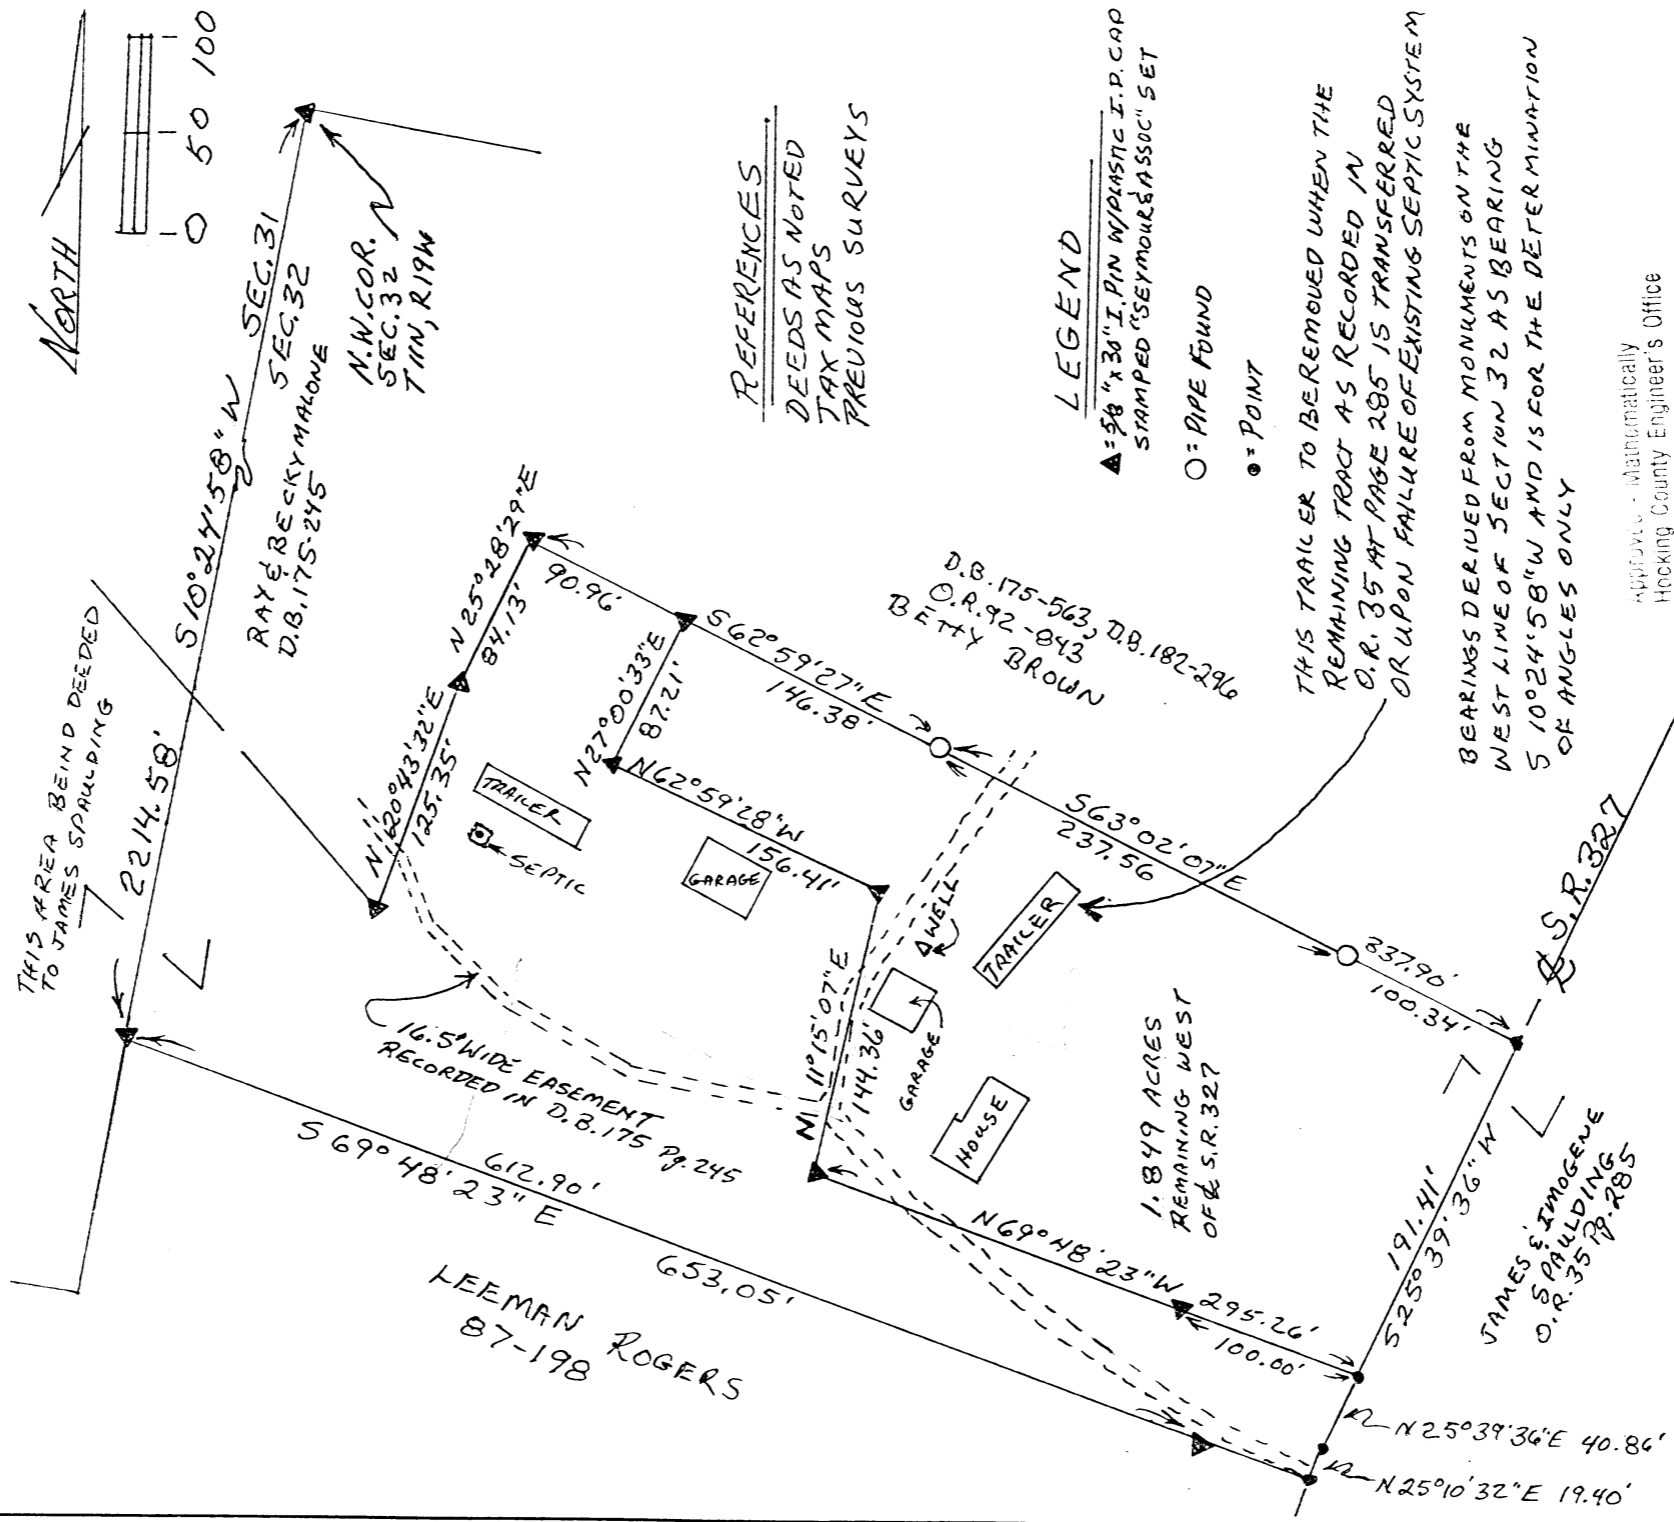 NORTH
0 50 100
THIS AREA BEIND DEEDED
TO JAMES SPAULDING
S 10°24'58" W
2214.58'
SEC. 31
SEC. 32
RAY & BECKY MALONE
D.B. 175-245
N.W. COR.
SEC. 32
T11N, R19W
REFERENCES
DEEDS AS NOTED
TAX MAPS
PREVIOUS SURVEYS
LEGEND
▲=5/8"x30" I. PIN W/PLASTIC I.D. CAP
STAMPED "SEYMOUR & ASSOC" SET
O= PIPE FOUND
●= POINT
THIS TRAILER TO BE REMOVED WHEN THE
REMAINING TRACT AS RECORDED IN
O.R. 35 AT PAGE 285 IS TRANSFERRED
OR UPON FAILURE OF EXISTING SEPTIC SYSTEM
BEARINGS DERIVED FROM MONUMENTS ON THE
WEST LINE OF SECTION 32 AS BEARING
S 10°24'58" W AND IS FOR THE DETERMINATION
OF ANGLES ONLY
Approved - Mathematically
Hocking County Engineer's Office
N 20°43'32" E
125.35'
N 25°28'29" E
84.13'
90.96'
N 27°00'33" E
87.21'
S 62°59'27" E
146.38'
D.B. 175-563, D.B. 182-296
O.R. 92-843
BETTY BROWN
N 62°59'28" W
156.41'
TRAILER
SEPTIC
GARAGE
S 63°02'07" E
237.56
WELL
TRAILER
GARAGE
HOUSE
N 11°15'07" E
144.36'
16.5' WIDE EASEMENT
RECORDED IN D.B. 175 Pg. 245
337.90'
100.34'
℄ S.R. 327
1.849 ACRES
REMAINING WEST
OF ℄ S.R. 327
S 69° 48' 23" E
612.90'
653.05'
LEEMAN ROGERS
87-198
N 69° 48' 23" W
295.26'
100.00'
191.41'
S 25° 39' 36" W
JAMES & IMOGENE
SPAULDING
O.R. 35 Pg. 285
N 25°39'36" E 40.86'
N 25°10'32" E 19.40'